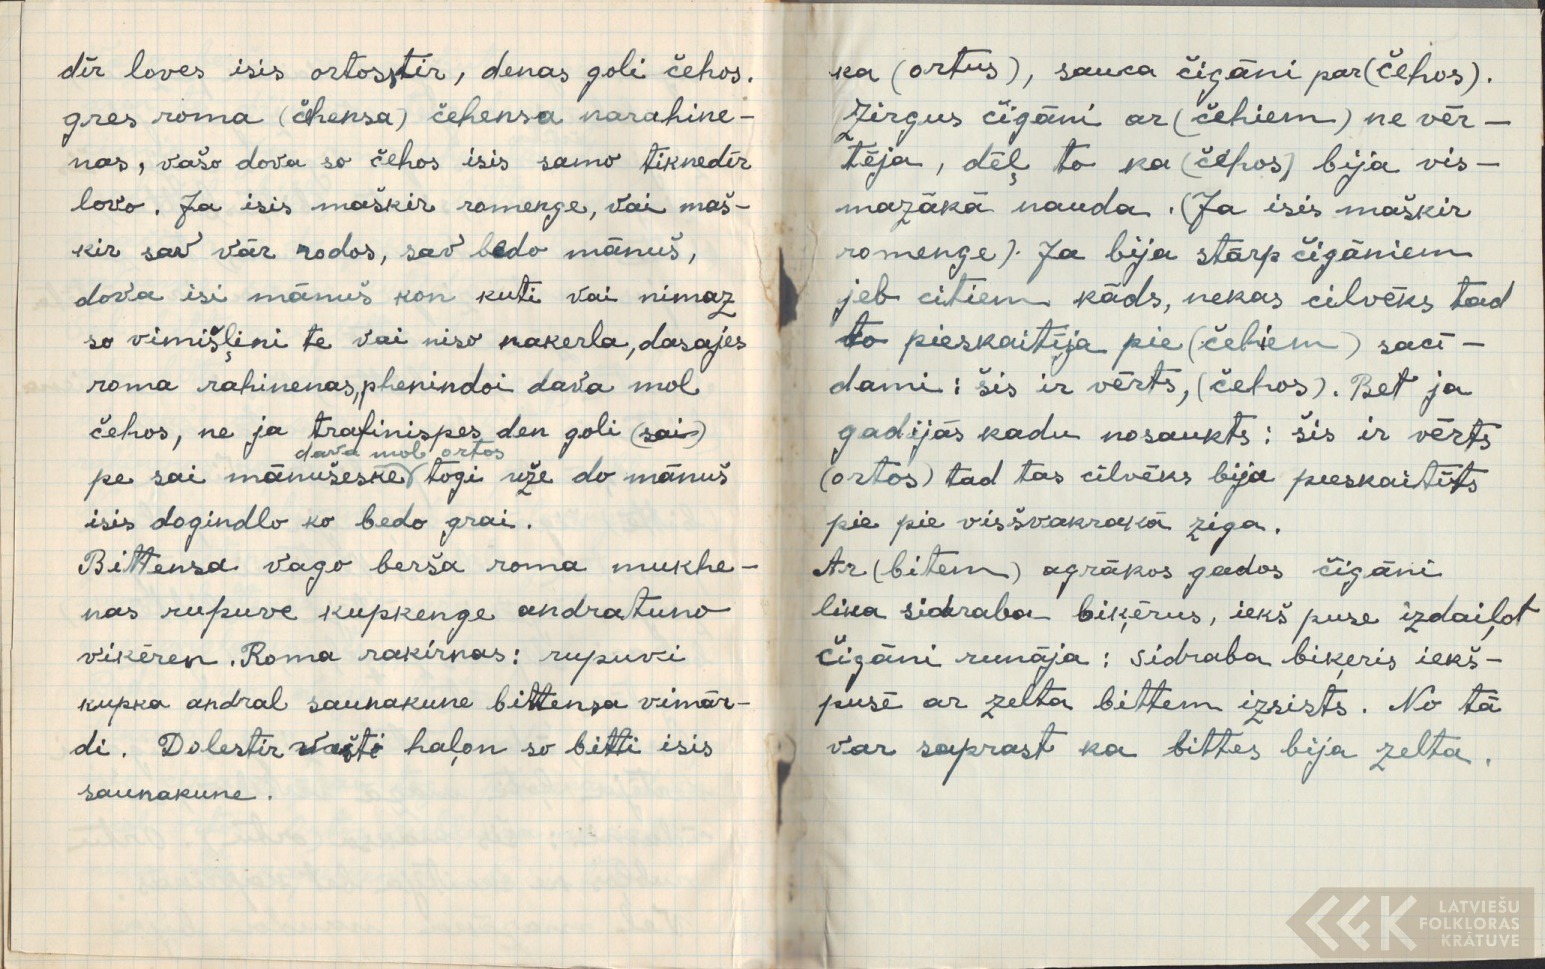 dīr loves isis ortosstir, denas goli čehos.
gres roma (čhensa) čehensa narahine-
nas, vašo dova so čehos isis samo tiknedīr
lovo. Ja isis maškir romenge, vai maš-
kir sav vār rodos, sav bedo mānuš,
dova isi mānuš kon kuti vai nimaz
so vimišļini te vai niso nakerla, dasajes
roma rahinenas, phenindoi dava mol
čehos, ne ja trafinispes den goli (sai)
dava mol ortos
pe sai mānušeske togi uže do mānuš
isis dogindlo ko bedo grai.
Bittensa vago berša roma mukhe-
nas rupuve kupkenge andratuno
vikēren. Roma rakirnas: rupuvi
kupka andral saunakune bittensa vimār-
di. Dolestīr haļon so bitti isis
saunakune.
ka (ortus), sauca čigāni par (čehos).
Zirgus čigāni ar (čehiem) ne vēr-
tēja, dēļ to ka (čehos) bija vis-
mazākā nauda. (Ja isis maškir
romenge). Ja bija stārp čigāniem
jeb citiem kāds, nekas cilvēks tad
to pieskaitīja pie (čehiem) sacī-
dami: šis ir vērts, (čehos). Bet ja
gadijās kadu nosaukts: šis ir vērts
(ortos) tad tas cilvēks bija pieskaitīts
pie pie visšvakrakā ziga.
Ar (bitem) agrākos gados čigāni
lika sidraba biķērus, iekš puse izdaiļot
čigāni runāja: sidraba biķeris iekš-
pusē ar zelta bittem izsists. No tā
var saprast ka bittes bija zelta.
LATVIEŠU
FOLKLORAS
KRĀTUVE